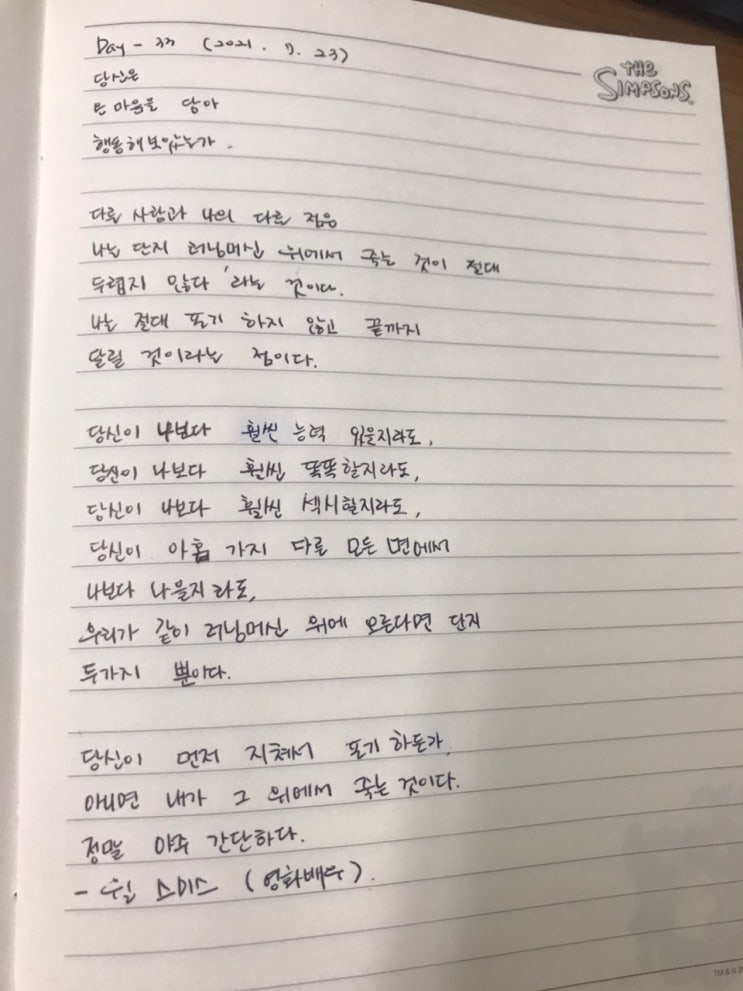 Day - 33 (2021. 7. 23)
THE
SIMPSONS
당신은
온 마음을 담아
행동해보았는가.
다른 사람과 나의 다른 점은
나는 단지 러닝머신 위에서 죽는 것이 절대
두렵지 않다 '라는 것이다.
나는 절대 포기 하지 않고 끝까지
달릴 것이라는 점이다.
당신이 나보다 훨씬 능력 있을지라도,
당신이 나보다 훨씬 똑똑할지라도,
당신이 나보다 훨씬 섹시할지라도,
당신이 아홉 가지 다른 모든 면에서
나보다 나을지라도,
우리가 같이 러닝머신 위에 오른다면 단지
두가지 뿐이다.
당신이 먼저 지쳐서 포기 하든가,
아니면 내가 그 위에서 죽는 것이다.
정말 아주 간단하다.
- 윌 스미스 (영화배우).